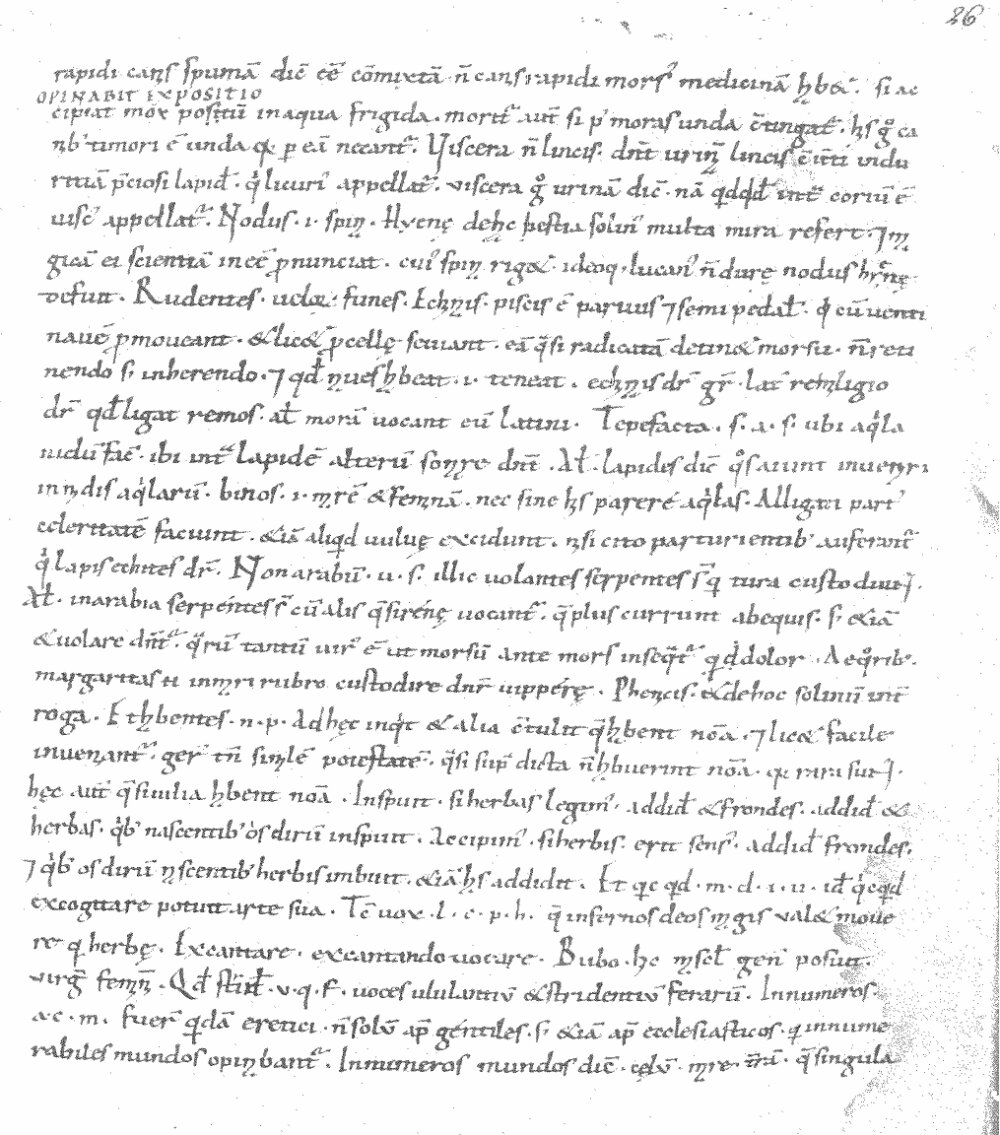 26
rapidi canis spumã dic̃ eẽ cõmixtã ñ canis rapidi mors᾽ medicinã hb&᾽. si ac
OPINABIT EXPOSITIO
cipiat mox positũ in aqua frigida. morit᾽ aut̃ si p᾽ moras unda c̃tingat᾽. his g̊ ca
nib᾽ timori ẽ unda qa p eã necant᾽. Viscera ñ lincis. dnt̃ urinã lincis
ritiã p̃ciosi lapid᾽. licuri᾽ appellat᾽. viscera g̊ urinã dic̃. nã coriũ ẽ
uisc᾽ appellat᾽. Nodus. i. spina. Hyenę de hac bestia solin᾽ multa mira refert. ⁊ ma
gicã ei scientiã in eẽ p̃nunciat. cui᾽ spina rig&. ideoq, lucan᾽ ñ durę nodus
defuit. Rudentes. uelox. funes. Echinis. piscis ẽ paruus ⁊ semi pedal̃. q cũ uenti
nauẽ p̃moueant. & lic& p̃cellę seuiant. eã q̃si radicatã detin& morsu. ñ reti
nendo s; inherendo. ⁊ qd̃ naues hbeat. i. teneat. echinis dr̃ gr̃. lat᾽
dr̃ qd̃ ligat remos. al̃ morã uocant eũ latini. Tepefacta. s. a. s. ubi aq̾la
nidũ fac̃. ibi int᾽ lapidẽ alterũ sonare dnt̃. Al̃. lapides dic̃ q̊s aiunt inueniri
in nidis aq̾larũ. binos. i. marẽ & feminã. nec sine his parere aq̾las. Alligati part᾽
celeritatẽ faciunt. &iã aliqd uuluę excidunt. nisi cito parturientib᾽ auferant᾽
q̾ lapis echites dr̃. Non arabũ. u. s. illic uolantes serpentes s̃ q tura custodiunt.
Al̃. in arabia serpentes s̃ cũ alis q̃ sirenę uocant᾽. q̃ plus currunt ab equis. s; &iã
& uolare dnt̃. q̃rũ tantũ uir᾽ ẽ ut morsũ ante mors insequat᾽ dolor. Aeq̊rib᾽.
margaritas ñ in mari rubro custodire dnr̃ uipperę. Phenicis. & de hoc soliniũ int̃
roga. Et hbentes. n. p. Ad hęc inq̾t & alia c̃tulit q̃ hbent nom̃a. ⁊ lic& facile
inueniant᾽. ger᾽ tñ similẽ potestatẽ. q̃si sup᾽ dicta ñ hbuerint nom̃a. qa rara sunt.
hęc aut̃ q̃ siuilia hbent nom̃a. Inspuit. si herbas legim᾽. addid᾽ & frondes. addid᾽ &
herbas. q̾b᾽ nascentib᾽ os dirũ inspuit. Accipim᾽. si herbis. erit sens᾽. addid᾽ frondes.
⁊ q̾b᾽ os dirũ nascentib᾽ herbis imbuit. &iã his addidit. Et qic qd. m. d. i. u. id̃ q̾cqd
excogitare potuit arte sua. Tc̃ uox. l. c. p. h. q̃ infernos deos magis ual& moue
re q herbę. Excantare. excantando uocare. Bubo. hc mascl̃ gen᾽ posuit.
virg̃ feminã. Qd̃ strid᾽. v. q. f. uoces ululantiũ & stridentiũ ferarũ. Innumeros.
a. c. m. fuer̃ qdã eretici. ñ solũ ap̃ gentiles. s; &iã ap̃ ecclesiasticos. q innume
rabiles mundos opinabant᾽. Innumeros mundos dic̃. cęlũ. mare. trã. q̃ singula